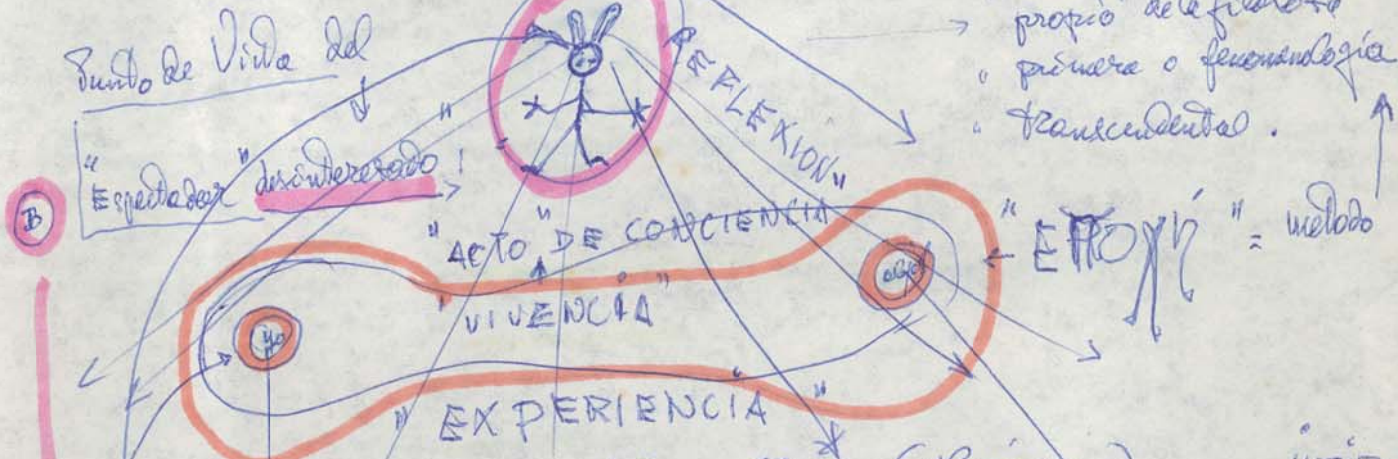 Punto de Vista del
"Espectador" desinteresado!
B
REFLEXION"
propio de la filosofía
primera o fenomenología
transcendental.
"ACTO DE CONCIENCIA
VIVENCIA"
yo
obj
"ΕΠΟΧΗ" = método
"EXPERIENCIA"